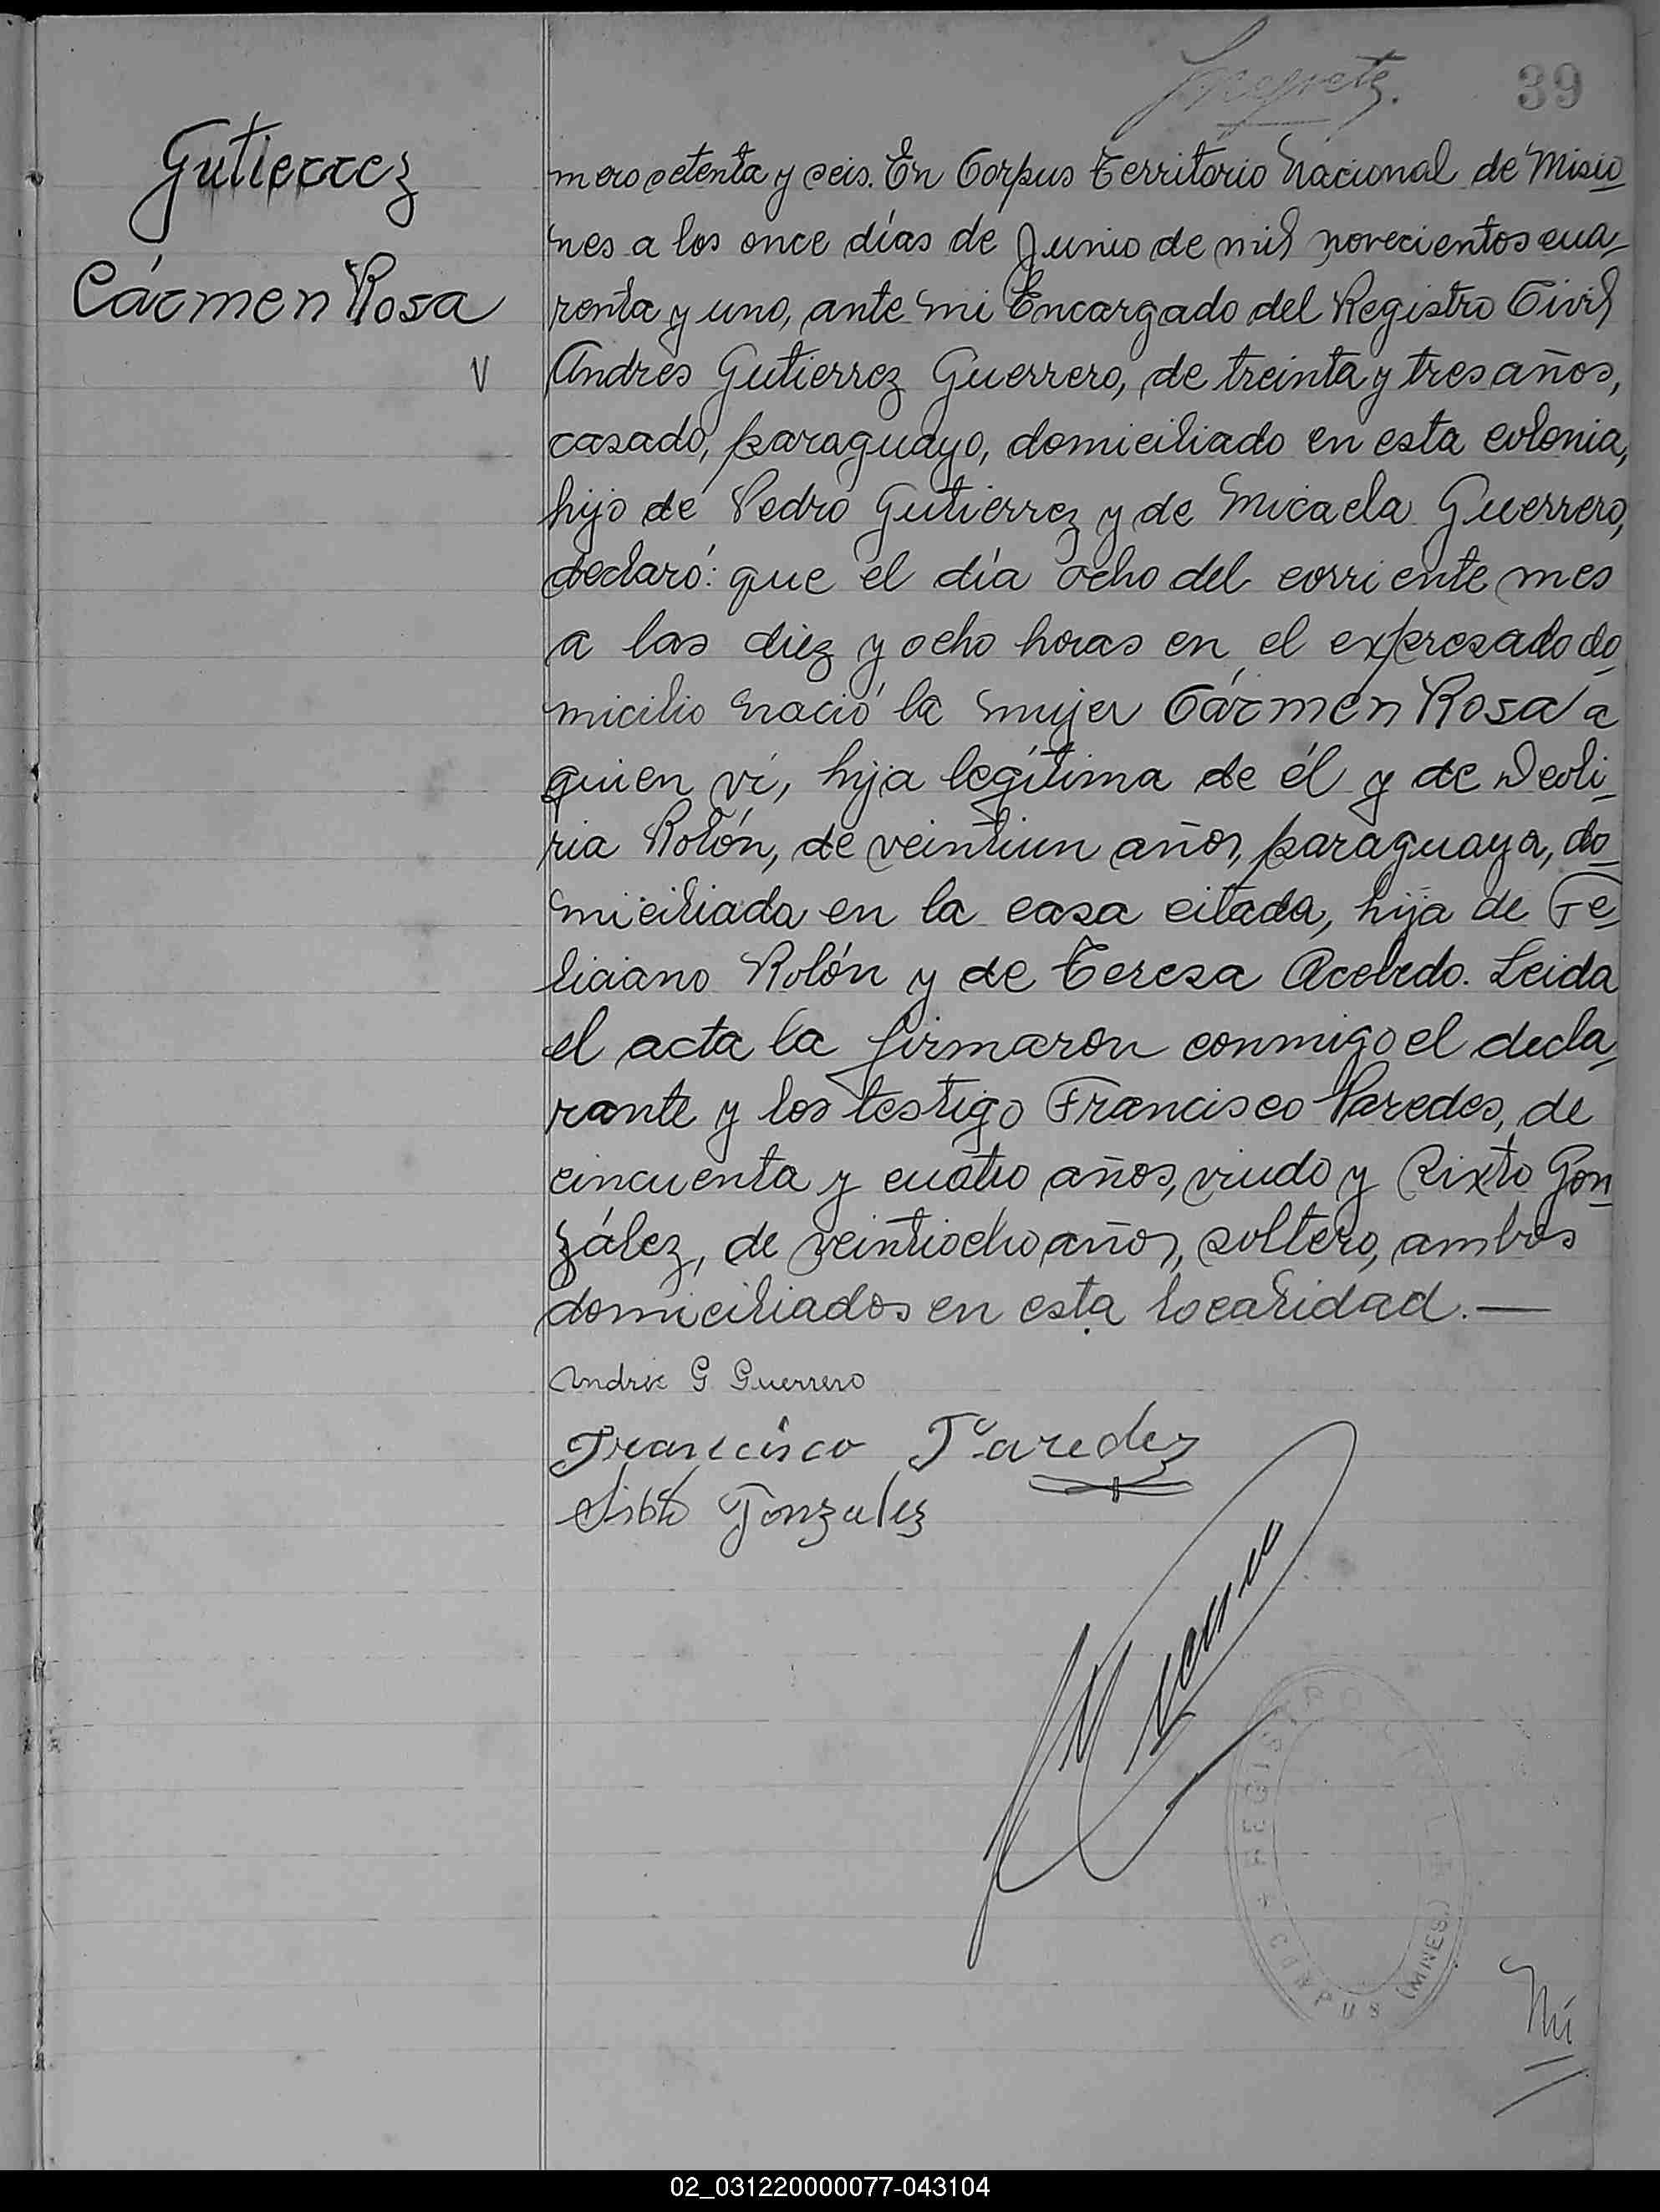 39
Gutierrez
Cármen Rosa
V
mero setenta y seis. En Corpus Territorio Nacional de Misio
nes a los once días de Junio de mil novecientos cua-
renta y uno, ante mi Encargado del Registro Civil
Andrés Gutierrez Guerrero, de treinta y tres años,
casado, paraguayo, domiciliado en esta colonia,
hijo de Pedro Gutierrez y de Micaela Guerrero,
declaró: que el día ocho del corriente mes
a las diez y ocho horas en el expresado do
micilio nació la mujer Cármen Rosa a
quien ví, hija legítima de él y de
Rolón, de veintiun años, paraguaya, do
miciliada en la casa citada, hija de Fe
liciano Rolón y de Teresa Acebedo. Leida
el acta la firmaron conmigo el decla
rante y los testigo Francisco Paredes, de
cincuenta y cuatro años, viudo y Sixto Gon
zález, de veintiocho años, soltero, ambos
domiciliados en esta localidad.—
Andres G Guerrero
Francisco Paredez
Sixto Gonzalez
REGISTRO CIVIL
CORPUS (MNES.)
Nú
02_031220000077-043104